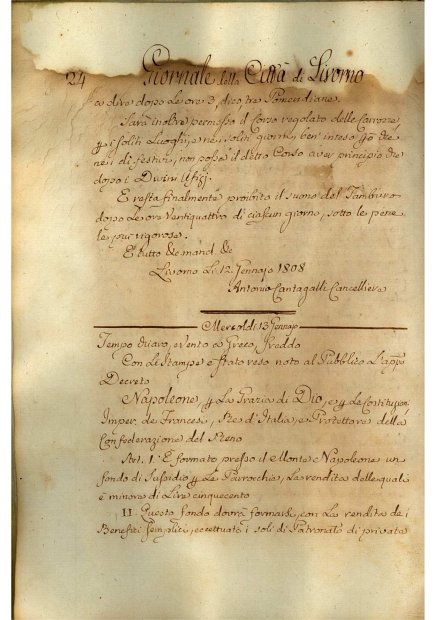 24 Giornale della Città di Livorno
a dire dopo le ore 3, dico, tre Pomeridiane.
Sarà inoltre permesso il Corso regolato delle Carrozze,
i soliti Luoghi, e nei soliti giorni, ben' inteso che
nei dì festivi, non possa il detto Corso aver principio che
dopo i Divini
E resta finalmente proibito il suono del Tamburo
dopo Le ore Ventiquattro di ciascun giorno, sotto le pene
le più rigorose.
E tutto &mand &c
Livorno Li 12. Gennajo 1808
Antonio Cantagalli Cancelliere
Mercoldì 13 Gennajo
Tempo chiaro, e vento a Greco, freddo
Con Le Stampe è stato reso noto al Pubblico L'app.
Decreto
Napoleone, La Grazia di Dio, e Le Costituzioni
Imper. de Francesi, Re d'Italia, e Protettore della
Confederazione del Reno
Art. 1. È formato presso il Monte Napoleone un
fondo di Sussidio Le Parrocchie, La rendita delle quali
è minore di Lire cinquecento
II. Questo fondo dovrà formarsi, con La rendita de i
Benefizi semplici, eccettuati i soli di Patronato di privata